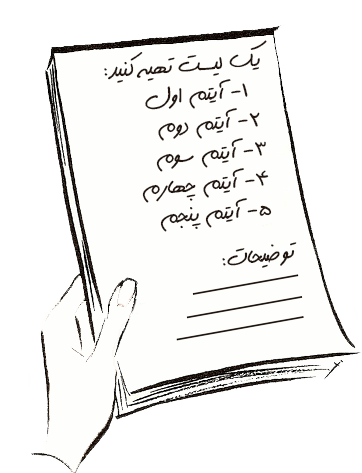 یک لیست تهیه کنید:
۱- آیتم اول
۲- آیتم دوم
۳- آیتم سوم
۴- آیتم چهارم
۵- آیتم پنجم
توضیحات: